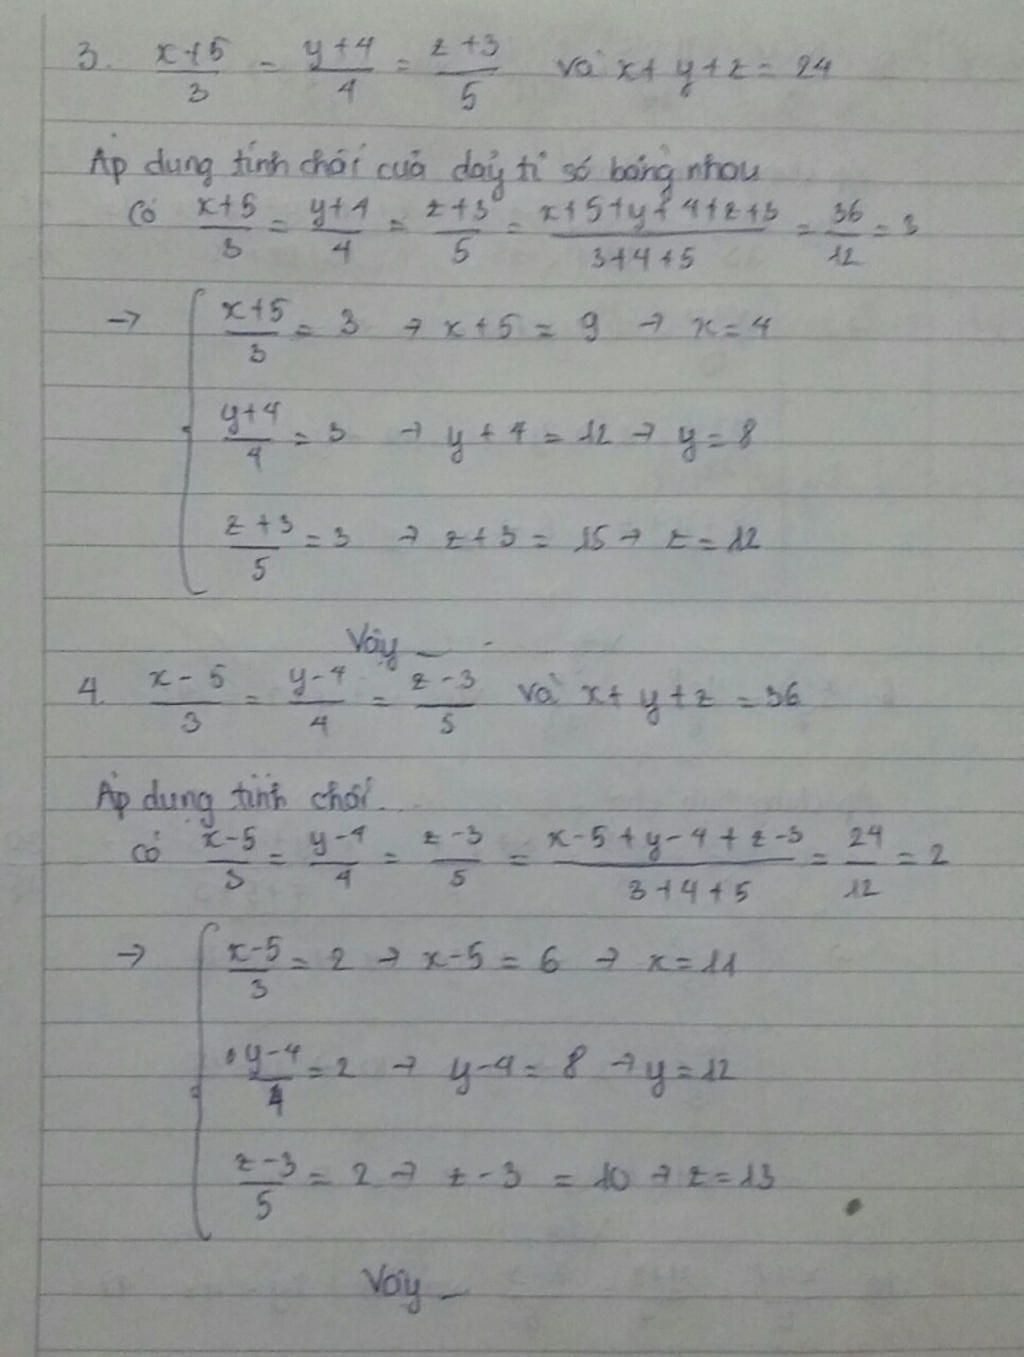 3. (x+5)/3 = (y+4)/4 = (z+3)/5 và x+y+z = 24
Áp dụng tính chất của dãy tỉ số bằng nhau
Có (x+5)/3 = (y+4)/4 = (z+3)/5 = (x+5+y+4+z+3)/(3+4+5) = 36/12 = 3
→ { (x+5)/3 = 3 → x+5 = 9 → x = 4
(y+4)/4 = 3 → y+4 = 12 → y = 8
(z+3)/5 = 3 → z+3 = 15 → z = 12
Vậy _
4. (x-5)/3 = (y-4)/4 = (z-3)/5 và x+y+z = 36
Áp dụng tính chất.
Có (x-5)/3 = (y-4)/4 = (z-3)/5 = (x-5+y-4+z-3)/(3+4+5) = 24/12 = 2
→ { (x-5)/3 = 2 → x-5 = 6 → x = 11
(y-4)/4 = 2 → y-4 = 8 → y = 12
(z-3)/5 = 2 → z-3 = 10 → z = 13
Vậy _